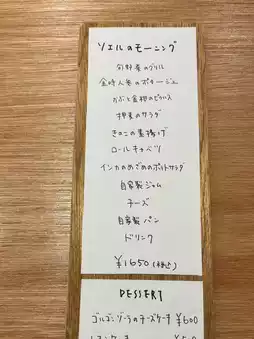 ソエルのモーニング
旬野菜のグリル
金時人参のポタージュ
かぶと金柑のピクルス
押麦のサラダ
きのこの素揚げ
ロールキャベツ
インカのめざめのポテトサラダ
自家製ジャム
チーズ
自家製パン
ドリンク
¥1650(税込)
DESSERT
ゴルゴンゾーラのチーズケーキ ¥600